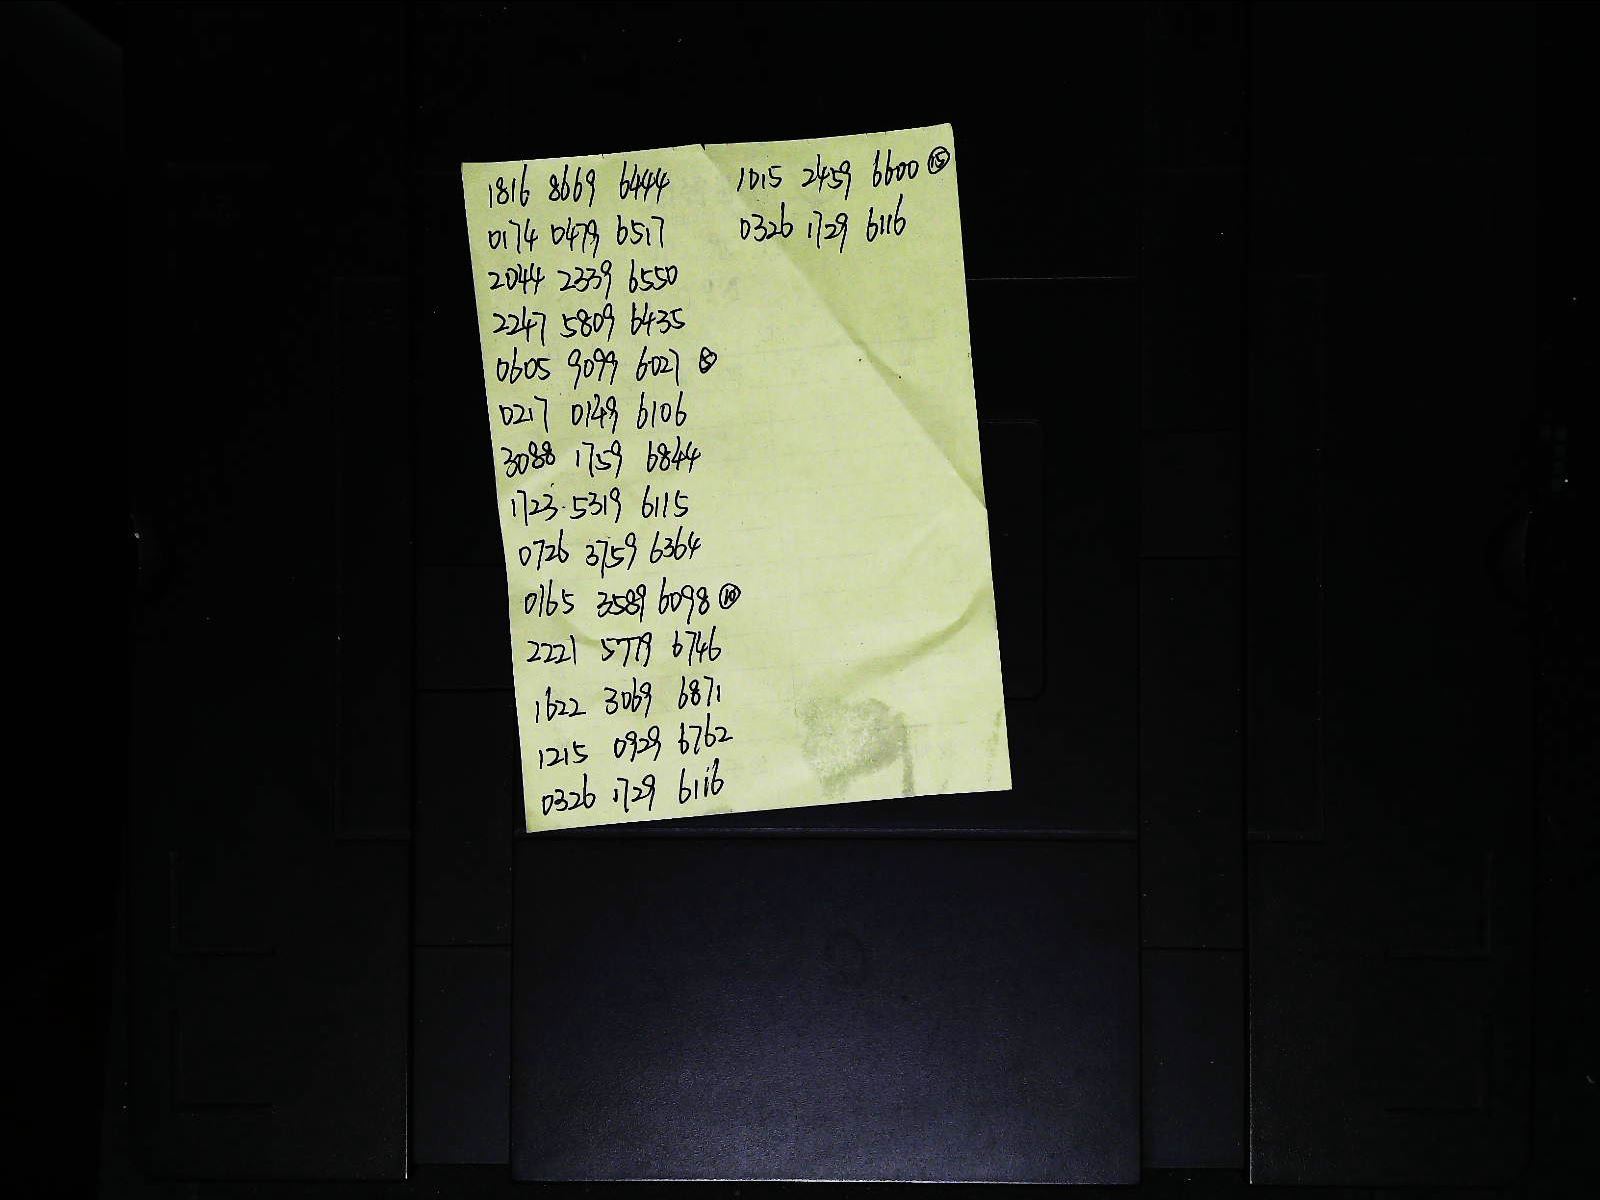 1816 8669 6444
0174 0479 6517
2044 2339 6550
2247 5809 6435
0605 9099 6027 ⑤
0217 0149 6106
3088 1759 6844
1723 5319 6115
0726 3759 6364
0165 3589 6098 ⑩
2221 5779 6746
1622 3069 6871
1215 0929 6762
0326 1729 6116
1015 2459 6600 ⑮
0326 1729 6116